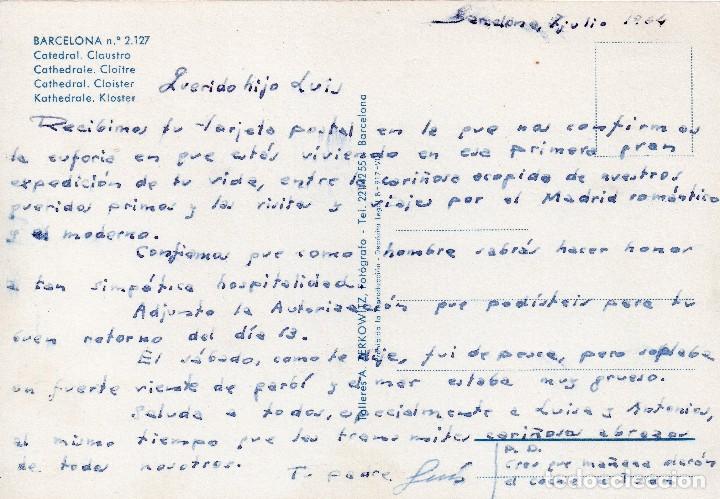 Barcelona, 7 julio 1964
BARCELONA n.º 2.127
Catedral. Claustro
Cathedrale. Cloître
Cathedral. Cloister
Kathedrale. Kloster
Querido hijo Luis
Recibimos tu tarjeta postal en la que nos confirmas
la euforia en que estás viviendo en esa primera gran
expedición de tu vida, entre la cariñosa acogida de nuestros
queridos primos y las visitas y viajes por el Madrid romántico
y el moderno.
Confiamos que como hombre sabrás hacer honor
a tan simpática hospitalidad.
Adjunto la Autorización que pedísteis para tu
buen retorno del día 13.
El sábado, como te dije, fui de pesca, pero soplaba
un fuerte viento de garbí y el mar estaba muy grueso.
Saluda a todos, especialmente a Luisa y Antonio,
al mismo tiempo que les transmites cariñosos abrazos
de todos nosotros.
Tu padre Luis
P.D.
Creo que mañana darán
el coche a
Talleres A. ZERKOWITZ, Fotógrafo - Tel. 2214255 - Barcelona
Prohibida la reproducción - Depósito Legal B.
todocoleccion